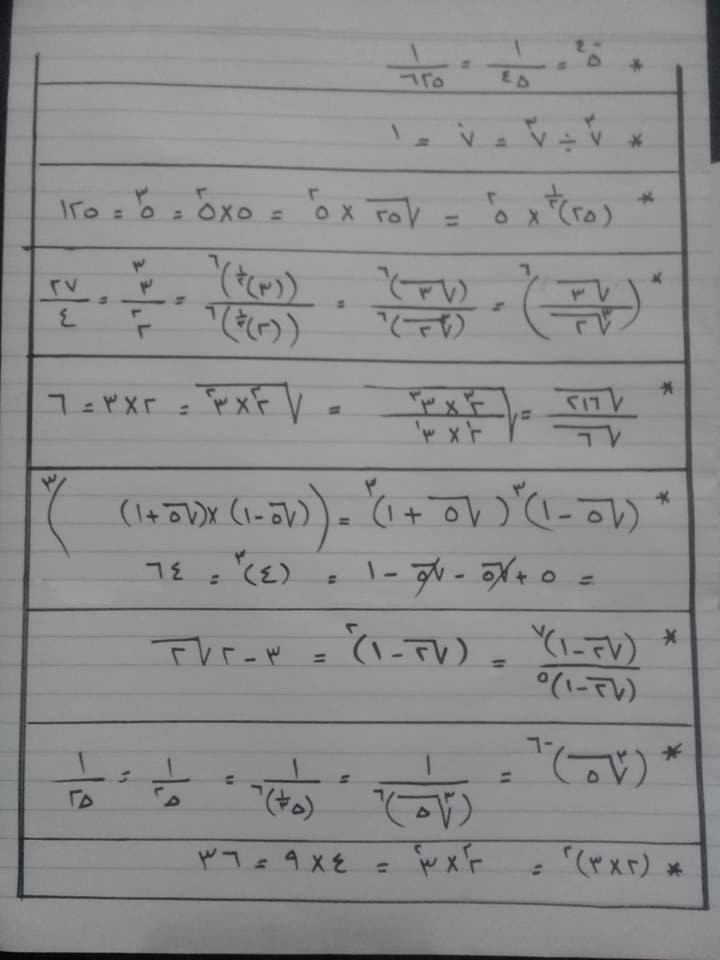 * ٥⁻٤ = ١/٥٤ = ١/٦٢٥
* ٧٣ ÷ ٧٣ = ٧٠ = ١
* (٢٥)^(١/٢) × ٥٢ = √٢٥ × ٥٢ = ٥×٥٢ = ٥٣ = ١٢٥
* (√٣ / ∛٢)^٦ = (√٣)^٦ / (∛٢)^٦ = ((٣)^(١/٢))^٦ / ((٢)^(١/٣))^٦ = ٣^٣ / ٢^٢ = ٢٧/٤
* √٢١٦ / √٦ = √(٢^٣ × ٣^٣ / ٢^١ × ٣^١) = √(٢^٢ × ٣^٢) = ٢×٣ = ٦
* (√٥ - ١)^٣ (√٥ + ١)^٣ = ((√٥-١) × (√٥+١))^٣
= ٥ + √٥ - √٥ - ١ = (٤)^٣ = ٦٤
* (√٢-١)^٧ / (√٢-١)^٥ = (√٢-١)^٢ = ٣ - ٢√٢
* (∛٥)^-٦ = ١ / (∛٥)^٦ = ١ / (٥^(١/٣))^٦ = ١/٥^٢ = ١/٢٥
* (٢×٣)^٢ = ٢^٢ × ٣^٢ = ٤ × ٩ = ٣٦